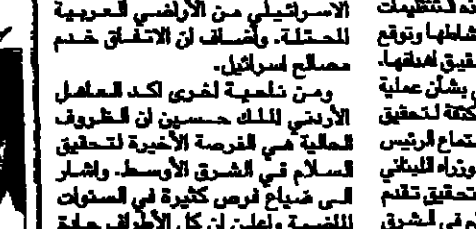 الاسرائيلي من الأراضي العربية
المحتلة. وأضاف ان الاتفاق خدم
مصالح اسرائيل.
ومن ناحية اخرى اكد العاهل
الأردني الملك حسين ان الظروف
الحالية هي الفرصة الأخيرة لتحقيق
السلام في الشرق الأوسط. واشار
الى ضياع فرص كثيرة في السنوات
الماضية واعلن ان كل الأطراف جادة
ده التنظيمات
شاطها وتوقع
قيق اهدافها.
ي بشأن عملية
كثفة لتحقيق
تماع الرئيس
وزراء اللبناني
تحقيق تقدم
م في الشرق